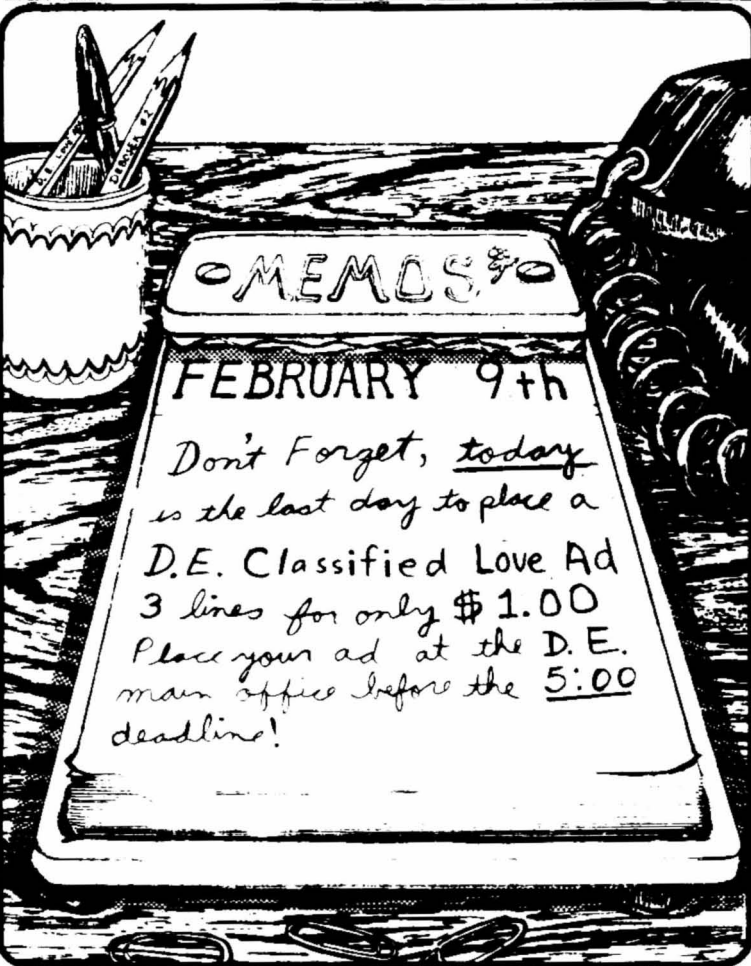 MEMOS
FEBRUARY 9th
Don't Forget, today
is the last day to place a
D.E. Classified Love Ad
3 lines for only $1.00
Place your ad at the D.E.
main office before the 5:00
deadline!